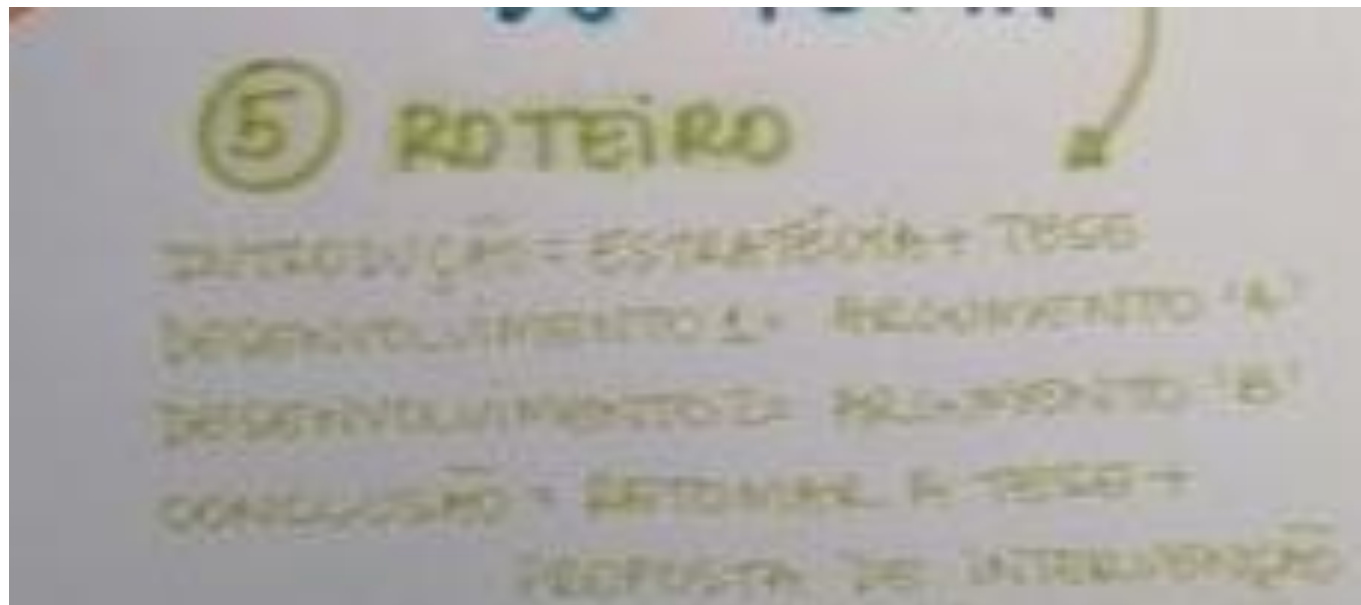 DO TEMA
5 ROTEIRO
INTRODUÇÃO = ESTRATÉGIA + TESE
DESENVOLVIMENTO 1 = ARGUMENTO "A"
DESENVOLVIMENTO 2 = ARGUMENTO "B"
CONCLUSÃO = RETOMAR A TESE +
PROPOSTA DE INTERVENÇÃO